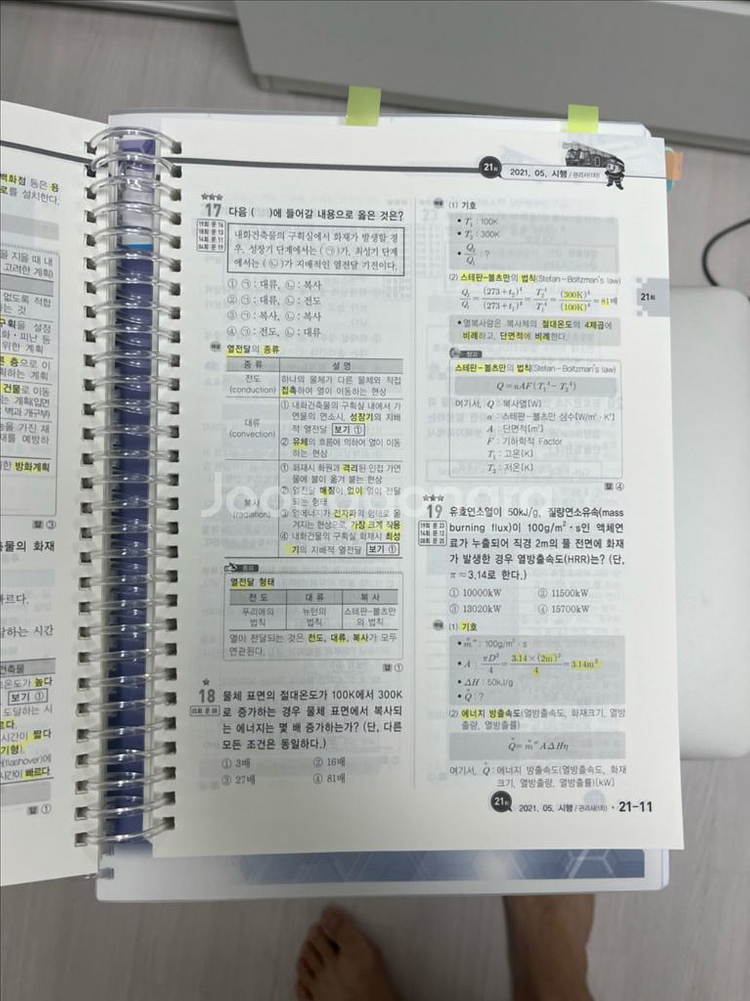 백화점 등은 용
로를 설치한다.
을 지을 때 내
고려한 계획)
없도록 적합
하는 것
구획을 설정
화·피난 등
위한 계획
른 층으로 이
확하는 계획
건물로 이동
는 계획(입면
벽과 개구부)
능을 가진 재
재를 예방하
한 방화계획
답 ③
축물의 화재
빠르다.
달하는 시간
건축물
온도가 높다
보기 ①
도달하는 시
르다.
시간이 짧다
기형).
(flashover)에
시간이 빠르다.
답 ①
21회
2021. 05. 시행 / 관리사(1차)
★★★
17 다음 ( )에 들어갈 내용으로 옳은 것은?
내화건축물의 구획실에서 화재가 발생할 경
우, 성장기 단계에서는 ( ㉠ )가, 최성기 단계
에서는 ( ㉡ )가 지배적인 열전달 기전이다.
① ㉠ : 대류, ㉡ : 복사
② ㉠ : 대류, ㉡ : 전도
③ ㉠ : 복사, ㉡ : 복사
④ ㉠ : 전도, ㉡ : 대류
해설 열전달의 종류
종 류 설 명
전도
(conduction)
하나의 물체가 다른 물체와 직접
접촉하여 열이 이동하는 현상
대류
(convection)
① 내화건축물의 구획실 내에서 가
연물의 연소시, 성장기의 지배
적 열전달 보기 ①
② 유체의 흐름에 의하여 열이 이동
하는 현상
복사
(radiation)
① 화재시 화원과 격리된 인접 가연
물에 불이 옮겨 붙는 현상
② 열전달 매질이 없이 열이 전달
되는 형태
③ 열에너지가 전자파의 형태로 옮
겨지는 현상으로, 가장 크게 작용
④ 내화건축물의 구획실 화재시 최성
기의 지배적 열전달 보기 ①
중요
열전달 형태
전 도 대 류 복 사
푸리에의 법칙 뉴턴의 법칙 스테판-볼츠만의 법칙
열이 전달되는 것은 전도, 대류, 복사가 모두
연관된다.
답 ①
★
18 물체 표면의 절대온도가 100K에서 300K
로 증가하는 경우 물체 표면에서 복사되
는 에너지는 몇 배 증가하는가? (단, 다른
모든 조건은 동일하다.)
① 3배 ② 16배
③ 27배 ④ 81배
해설 (1) 기호
• T₁ : 100K
• T₂ : 300K
• Q₂/Q₁ : ?
(2) 스테판-볼츠만의 법칙(Stefan-Boltzman's law)
Q₂/Q₁ = (273+t₂)⁴/(273+t₁)⁴ = T₂⁴/T₁⁴ = (300K)⁴/(100K)⁴ = 81배
• 열복사량은 복사체의 절대온도의 4제곱에
비례하고, 단면적에 비례한다.
참고
스테판-볼츠만의 법칙(Stefan-Boltzman's law)
Q = aAF(T₁⁴ − T₂⁴)
여기서, Q : 복사열[W]
a : 스테판-볼츠만 상수[W/m²·K⁴]
A : 단면적[m²]
F : 기하학적 Factor
T₁ : 고온[K]
T₂ : 저온[K]
답 ④
21회
★★★
19 유효연소열이 50kJ/g, 질량연소유속(mass
burning flux)이 100g/m²·s인 액체연
료가 누출되어 직경 2m의 풀 전면에 화재
가 발생한 경우 열방출속도(HRR)는? (단,
π≒3.14로 한다.)
① 10000kW ② 11500kW
③ 13020kW ④ 15700kW
해설 (1) 기호
• ṁ″ : 100g/m²·s
• A : πD²/4 = 3.14×(2m)²/4 = 3.14m²
• ΔH : 50kJ/g
• Q̇ : ?
(2) 에너지 방출속도(열방출속도, 화재크기, 열방
출량, 열방출률)
Q̇ = ṁ″AΔHη
여기서, Q̇ : 에너지 방출속도(열방출속도, 화재
크기, 열방출량, 열방출률)[kW]
21회
2021. 05. 시행 / 관리사(1차) · 21-11